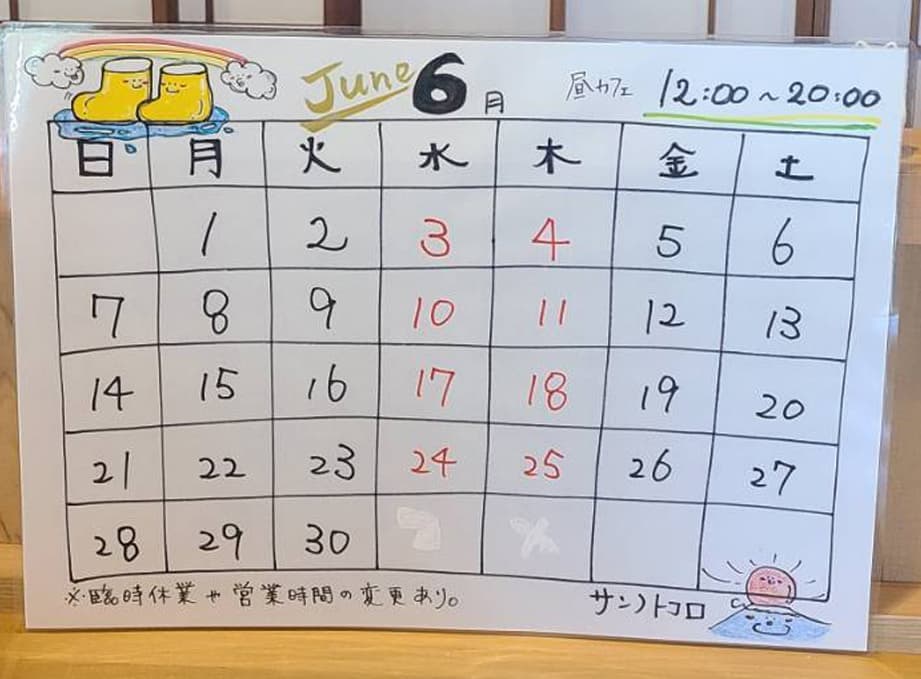 June 6月 昼カフェ 12:00~20:00
日 月 火 水 木 金 土
1 2 3 4 5 6
7 8 9 10 11 12 13
14 15 16 17 18 19 20
21 22 23 24 25 26 27
28 29 30
※臨時休業や営業時間の変更あり。 サンノトコロ